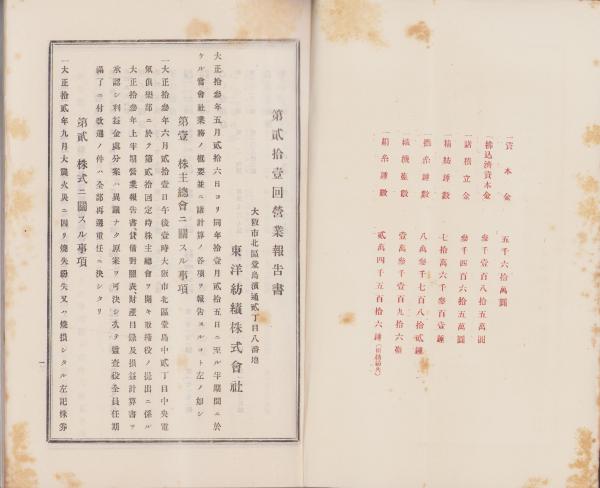 一資本金 五千六拾萬圓
一拂込濟資本金 參千壹百八拾五萬圓
一諸積立金 參千四百六拾五萬圓
一精紡錘數 七拾萬六千參百壹錘
一撚糸錘數 八萬參千七百八拾貳錘
一織機臺數 壹萬參千壹百九拾六臺
一絹糸錘數 貳萬四千五百拾六錘
第貳拾壹回營業報告書
大阪市北區堂島濱通貳丁目八番地
東洋紡績株式會社
大正拾參年五月貳拾六日ヨリ同年拾壹月貳拾五日ニ至ル半期間ニ於
ケル當會社業務ノ概要並ニ諸計算ノ各項ヲ報告スルコト左ノ如シ
第壹 株主總會ニ關スル事項
一大正拾參年六月貳拾壹日午後壹時大阪市北區堂島中貳丁目中央電
氣俱樂部ニ於テ第貳拾回定時株主總會ヲ開キ取締役ノ提出ニ係ル
大正拾參年上半期營業報告書、貸借對照表財產目錄及損益計算書ヲ
承認シ利益金處分案ハ異議ナク原案ヲ可決シ次テ監查役全員任期
滿了ニ付改選ノ件ハ全部再選重任ニ決シタリ
第貳 株式ニ關スル事項
一大正拾貳年九月大震火災ニ因リ燒失紛失又ハ燒損シタル左記株券
一